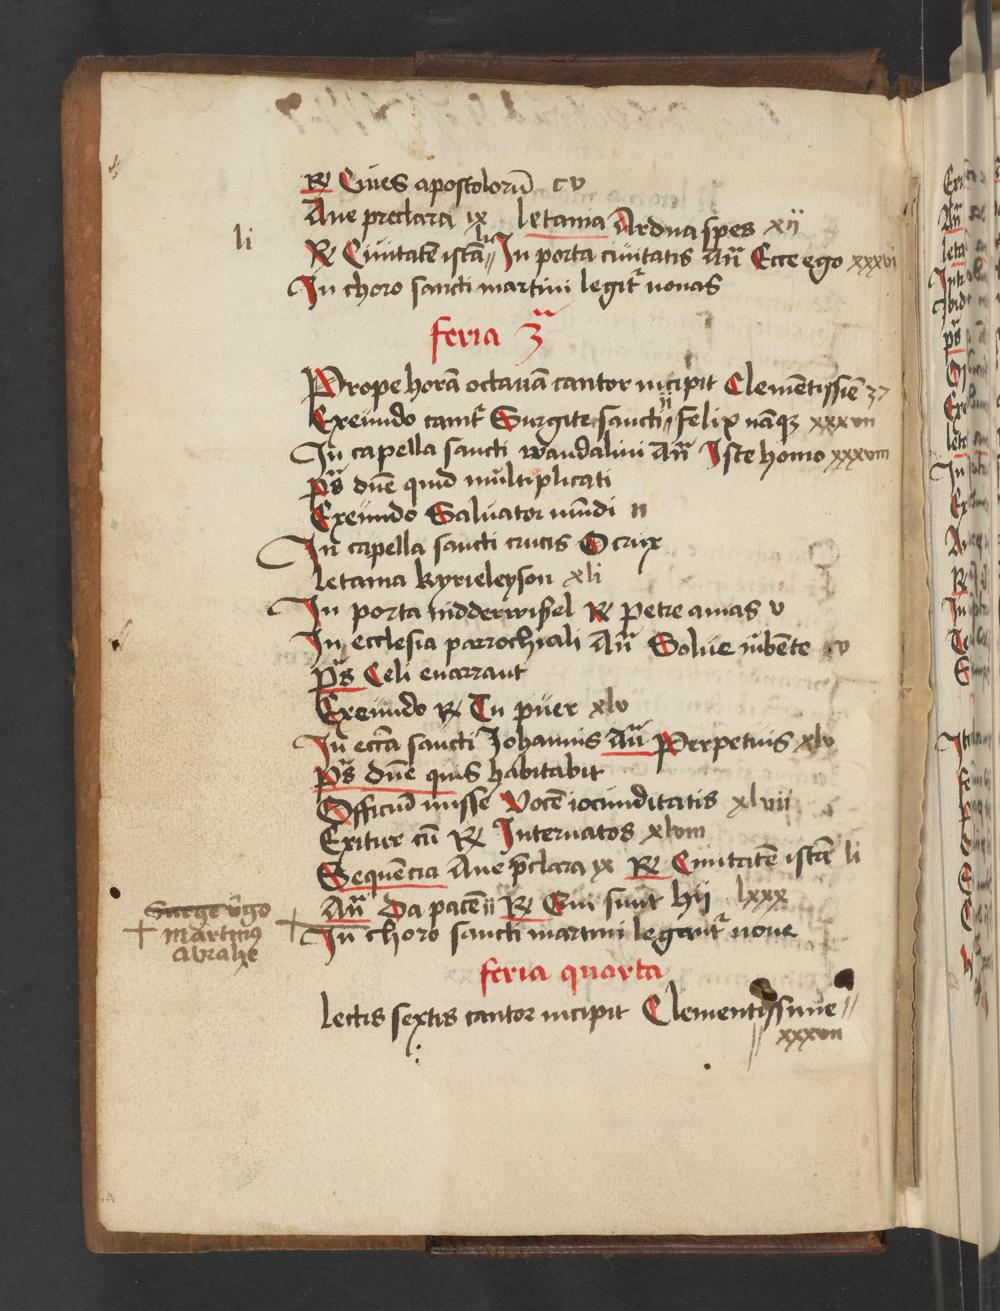 R Ciues apostolorū cv
Aue preclara ix letania Ardua spes xii
li
R Ciuitatē istā li In porta ciuitatis Añ Ecce ego xxxvi
In choro sancti martini legitr nonas
feria 3a
Prope horā octauā cantor incipit Clemētissīe 37
Exeundo cantr Surgite sancti ii felix nāqz xxxvii
In capella sancti wandalini Añ Iste homo xxxviii
ps dn̄e quid multiplicati
Exeundo Saluator mūdi ii
In capella sancti crucis O crux
letania kyrieleyson xli
In porta nidderwissel R Petre amas v
In ecclesia parrochiali Añ Solue iubēte cv
ps Celi enarrant
Exeundo R Tu puer xlv
In eccīa sancti Johannis Añ Perpetuis xlv
ps dn̄e quis habitabit
Officiū misse Vocē iocunditatis xlvii
Exitur cū R Internatos xlviii
Sequēcia Aue p̄clara ix R Ciuitatē istā li
Añ Da pacē ii R Qui sunt hii lxxx
Surge v̄go
+ martinus
abrahe
In choro sancti martini legūtr none
feria quarta
lectis sextis cantor incipit Clementissime
xxxvii